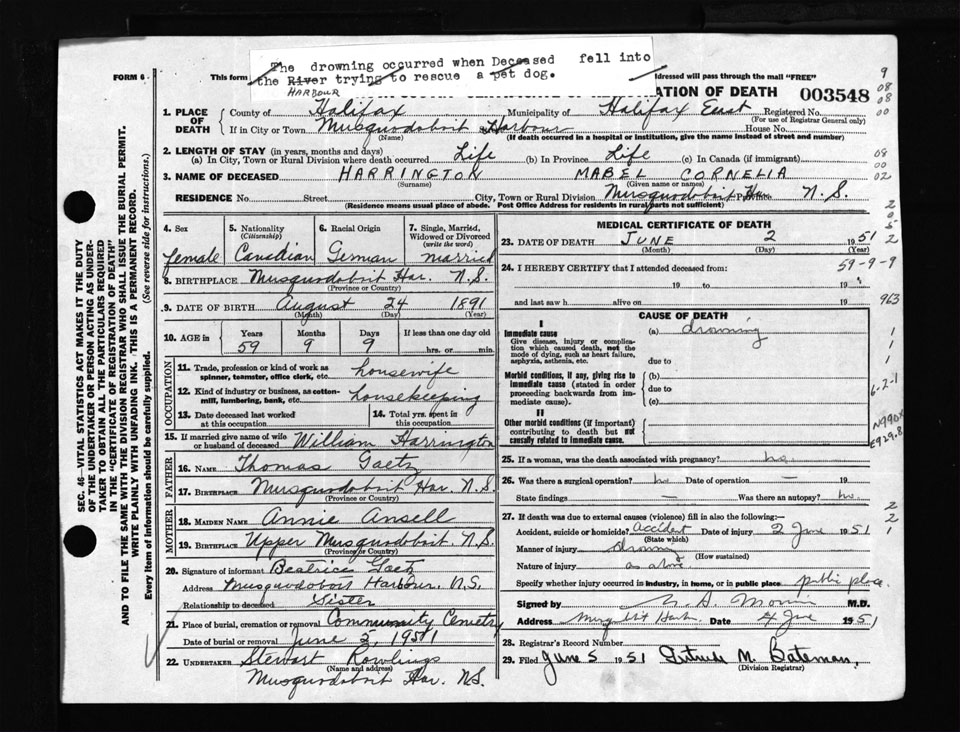 The drowning occurred when Deceased fell into
the River trying to rescue a pet dog.
HARBOUR
FORM 6
This form
ddressed will pass through the mail "FREE"
ATION OF DEATH
003548
1. PLACE OF DEATH
County of Halifax Municipality of Halifax East Registered No.
(For use of Registrar General only)
If in City or Town Musquodoboit Harbour House No.
(Name) (If death occurred in a hospital or institution, give the name instead of street and number)
2. LENGTH OF STAY (in years, months and days)
(a) In City, Town or Rural Division where death occurred Life (b) In Province Life (c) In Canada (if immigrant)
3. NAME OF DECEASED HARRINGTON MABEL CORNELIA
(Surname) (Given name or names)
RESIDENCE No. Street City, Town or Rural Division Musquodoboit Har. Province N.S.
(Residence means usual place of abode. Post Office Address for residents in rural parts not sufficient)
4. Sex 5. Nationality (Citizenship) 6. Racial Origin 7. Single, Married, Widowed or Divorced (write the word)
female Canadian German married
8. BIRTHPLACE Musquodoboit Har. N.S.
(Province or Country)
9. DATE OF BIRTH August 24 1891
(Month) (Day) (Year)
10. AGE in Years Months Days If less than one day old
59 9 9 hrs. or min.
OCCUPATION
11. Trade, profession or kind of work as spinner, teamster, office clerk, etc. housewife
12. Kind of industry or business, as cotton-mill, lumbering, bank, etc. housekeeping
13. Date deceased last worked at this occupation 14. Total yrs. spent in this occupation
15. If married give name of wife or husband of deceased William Harrington
FATHER
16. NAME Thomas Gaetz
17. BIRTHPLACE Musquodoboit Har. N.S.
(Province or Country)
MOTHER
18. MAIDEN NAME Annie Ansell
19. BIRTHPLACE Upper Musquodoboit. N.S.
(Province or Country)
20. Signature of informant Beatrice Gaetz
Address Musquodoboit Harbour. N.S.
Relationship to deceased Sister
21. Place of burial, cremation or removal Community Cemetry
Date of burial or removal June 5, 1951
22. UNDERTAKER Stewart Rowlings
(Name and address)
Musquodoboit Har. N.S.
MEDICAL CERTIFICATE OF DEATH
23. DATE OF DEATH JUNE 2 1951
(Month) (Day) (Year)
24. I HEREBY CERTIFY that I attended deceased from:
19 to 19
and last saw h alive on 19
CAUSE OF DEATH
I
Immediate cause (a) drowning
Give disease, injury or complication which caused death, not the mode of dying, such as heart failure, asphyxia, asthenia, etc.
due to
Morbid conditions, if any, giving rise to immediate cause (stated in order proceeding backwards from immediate cause).
(b)
due to
(c)
II
Other morbid conditions (if important) contributing to death but not causally related to immediate cause.
25. If a woman, was the death associated with pregnancy? no.
26. Was there a surgical operation? no Date of operation —
State findings — Was there an autopsy? no.
27. If death was due to external causes (violence) fill in also the following:—
Accident, suicide or homicide? Accident Date of injury 2 June 1951
(State which)
Manner of injury drowning
(How sustained)
Nature of injury as above
Specify whether injury occurred in industry, in home, or in public place public place.
Signed by M.D.
Address Date 4 June 1951
28. Registrar's Record Number
29. Filed June 5 1951 Gertrude M. Bateman.
(Division Registrar)
SEC. 46—VITAL STATISTICS ACT MAKES IT THE DUTY
OF THE UNDERTAKER OR PERSON ACTING AS UNDER-
TAKER TO OBTAIN ALL THE PARTICULARS REQUIRED
IN THE "CERTIFICATE OF REGISTRATION OF DEATH"
AND TO FILE THE SAME WITH THE DIVISION REGISTRAR WHO SHALL ISSUE THE BURIAL PERMIT.
WRITE PLAINLY WITH UNFADING INK. THIS IS A PERMANENT RECORD.
Every item of information should be carefully supplied. (See reverse side for instructions.)
9
08
08
00
08
00
02
2
0
5
2
59-9-9
963
1
1
1
6-2-1
N990X
E929.8
2
2
1